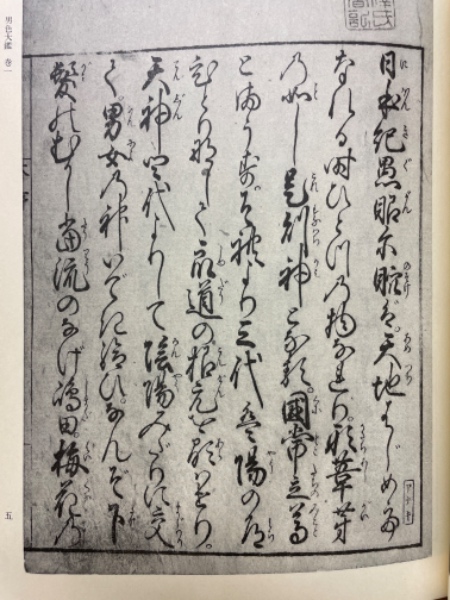 日本紀愚眼尓覗ば。天地はじめて
なれる時ひとつの物なれり。形葦芽
の如し是則神となる。國常立尊
と申す。それより三代は陽の道
ひとりなして衆道の根元を顕はせり。
天神四代よりして陰陽みだりに交
て。男女の神いでき給ひ。なんぞ下
髪のむかし當流のなげ嶋田。梅花の
男色大鑑 巻一
五